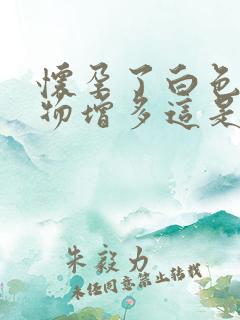 懷孕了白色
物增多這是
朱毅力
未经同意禁止转载